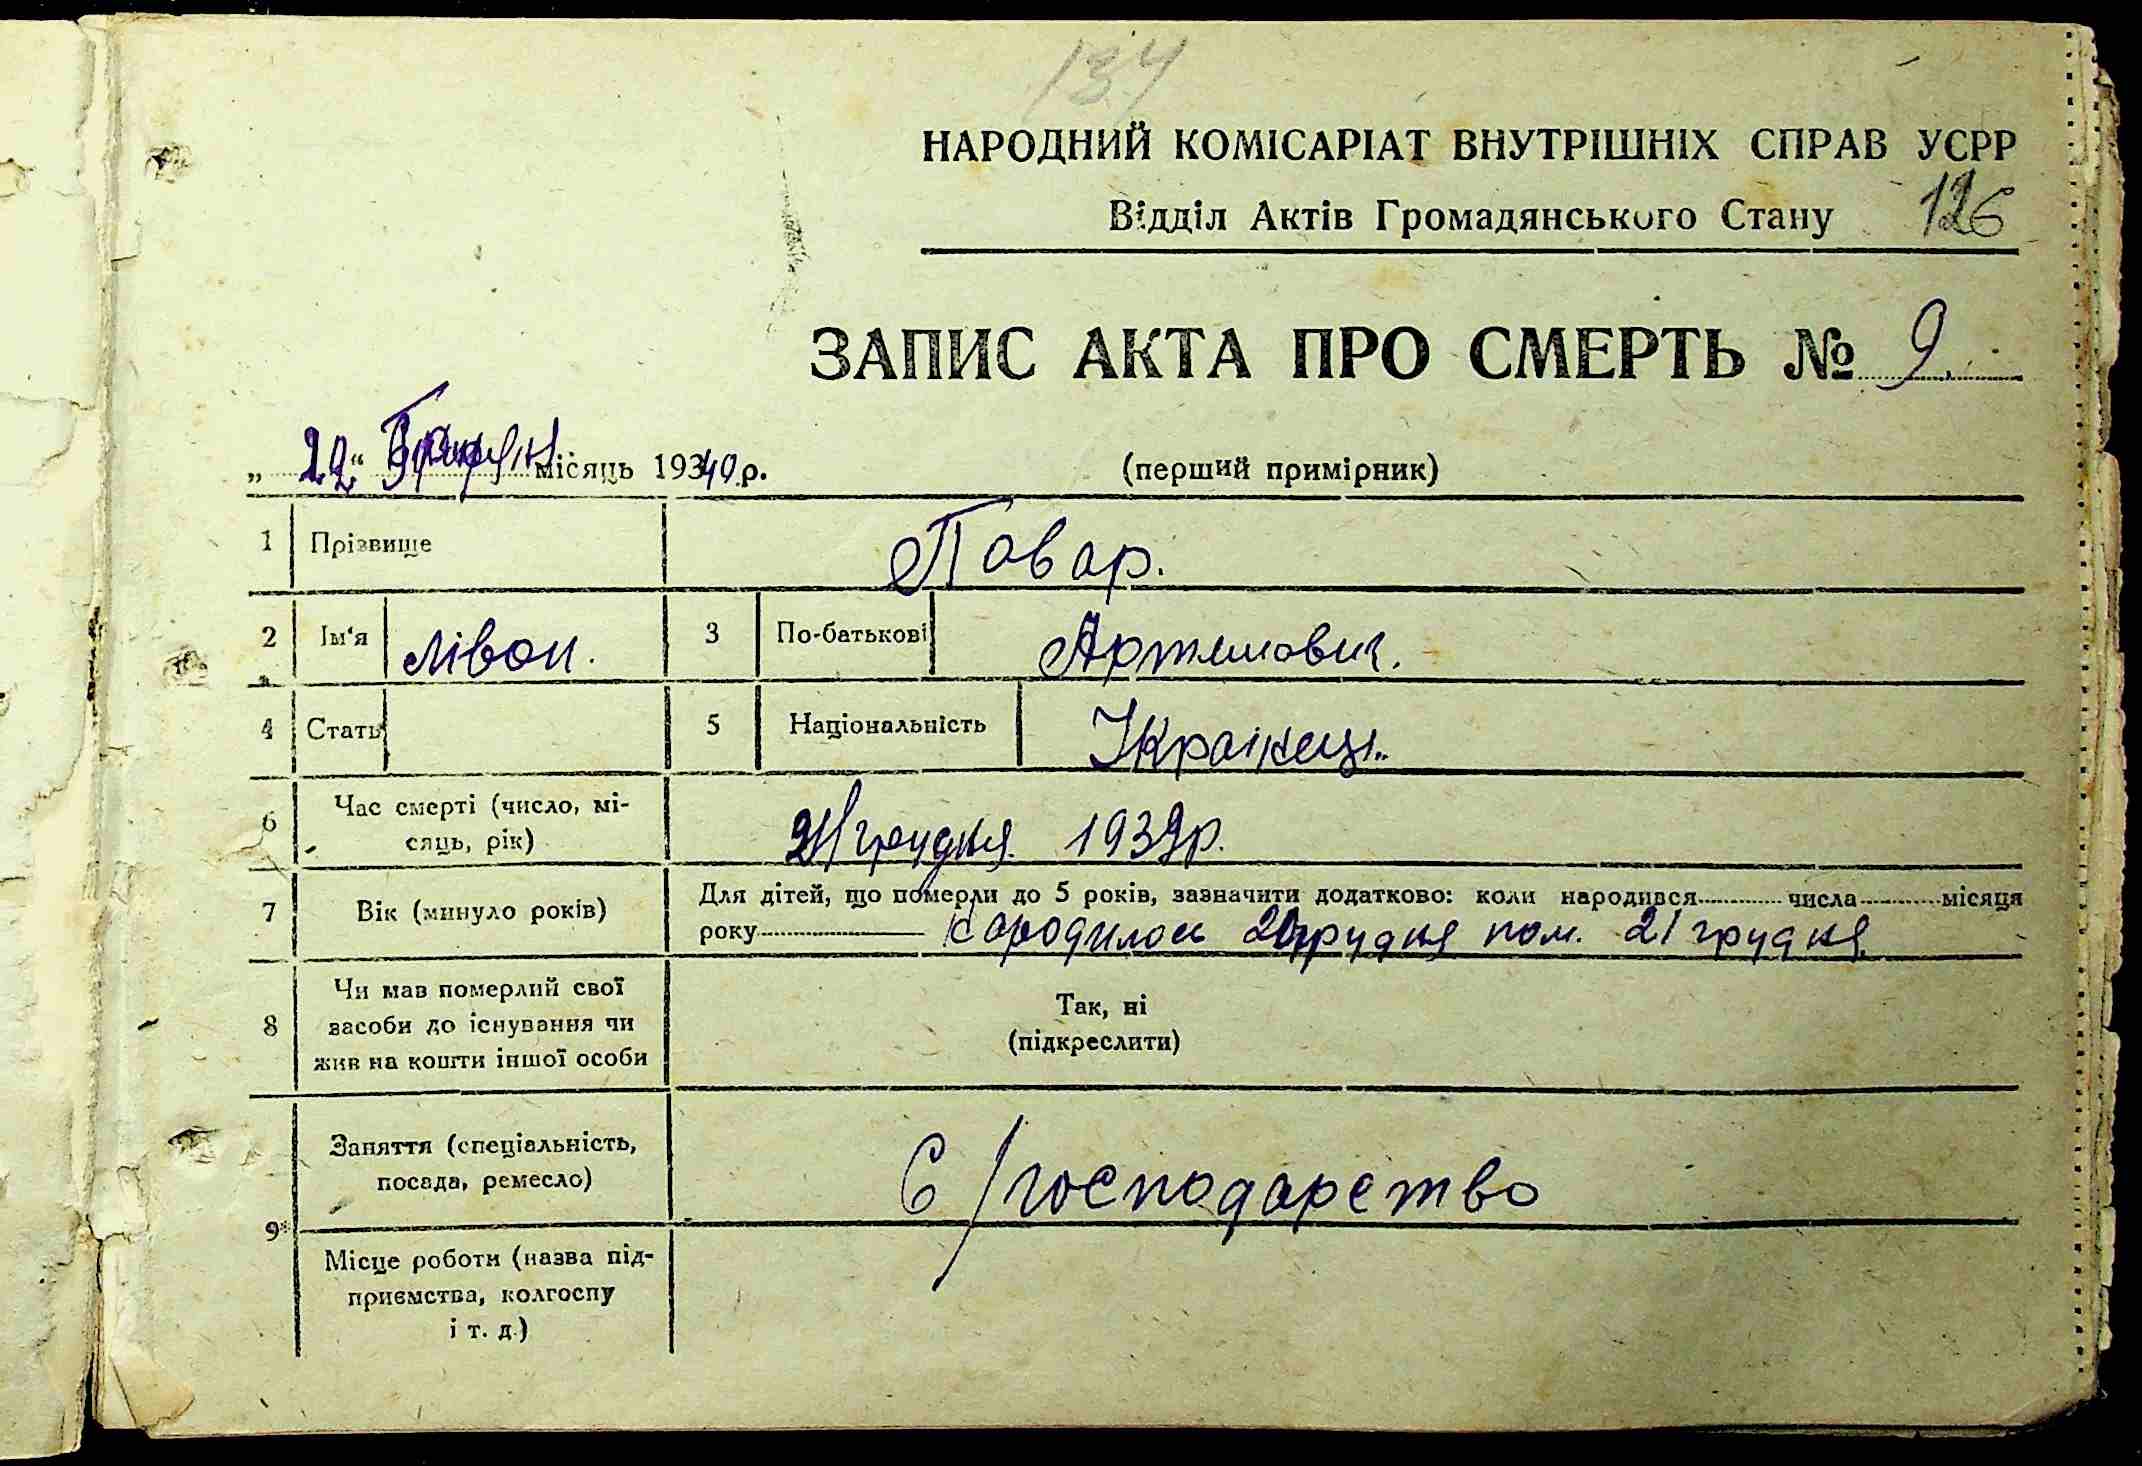 134
НАРОДНИЙ КОМІСАРІАТ ВНУТРІШНІХ СПРАВ УСРР
Відділ Актів Громадянського Стану 126
ЗАПИС АКТА ПРО СМЕРТЬ № 9.
„ 22 “ місяць 1940 р. (перший примірник)
1 Прізвище Повар.
2 Ім'я Лівон. 3 По-батькові Артемович.
4 Стать 5 Національність Українець.
6 Час смерті (число, мі-
сяць, рік) 21 грудня 1939 р.
7 Вік (минуло років) Для дітей, що померли до 5 років, зазначити додатково: коли народився числа місяця
року народилось 20 грудня пом. 21 грудня
8 Чи мав померлий свої
засоби до існування чи
жив на кошти іншої особи
Так, ні
(підкреслити)
9 Заняття (спеціальність,
посада, ремесло) С/господарство
Місце роботи (назва під-
приємства, колгоспу
і т. д.)